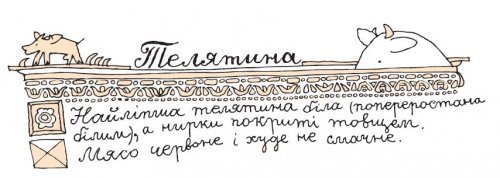 Телятина
Найліпша телятина біла (попереростана
білим), а нирки покриті товщем.
Мясо червоне і худе не смачне.